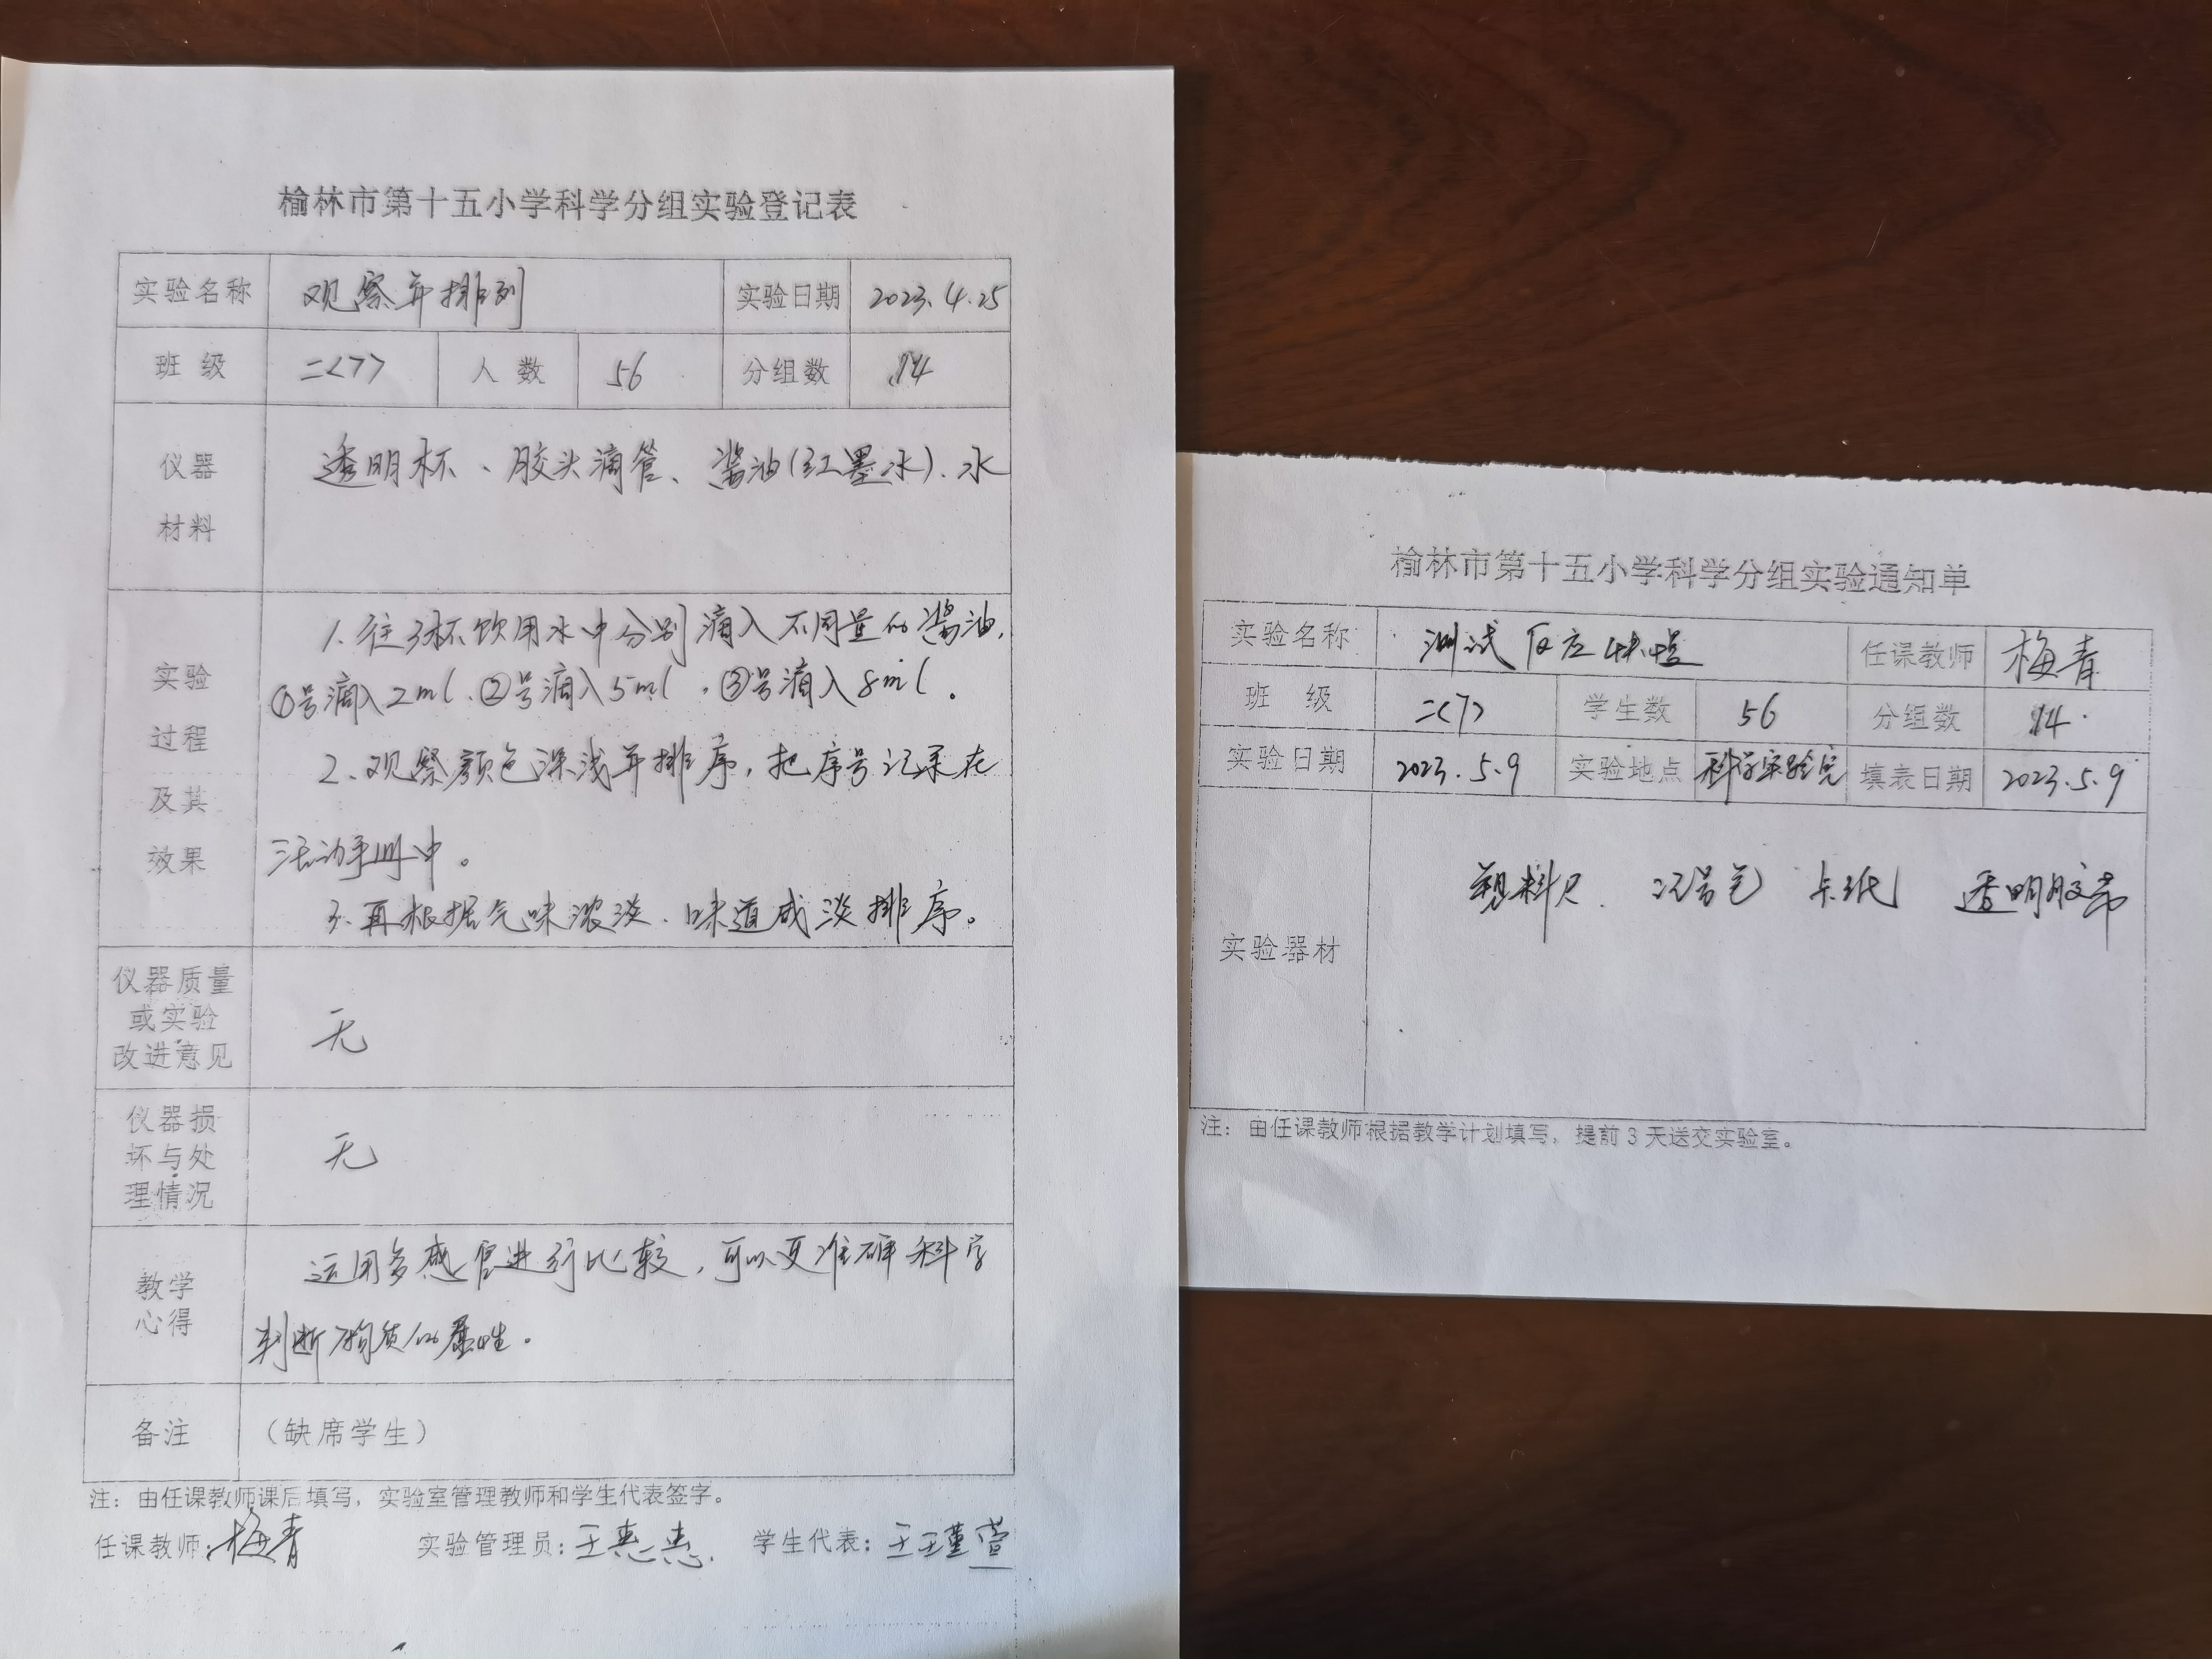 榆林市第十五小学科学分组实验登记表
实验名称 观察并排列 实验日期 2023.4.25
班 级 二<7> 人 数 56 分组数 14
仪器 透明杯、胶头滴管、酱油(红墨水).水
材料
1.往3杯饮用水中分别滴入不同量的酱油,
实验 ①号滴入2ml.②号滴入5ml,③号滴入8ml.
过程 2、观察颜色深浅并排序,把序号记录在
及其
效果 活动手册中。
3.再根据气味浓淡、味道咸淡排序。
仪器质量
或实验 无
改进意见
仪器损
坏与处 无
理情况
教学 运用多感官进行比较,可以更准确科学
心得 判断物质的属性。
备注 (缺席学生)
注：由任课教师课后填写，实验室管理教师和学生代表签字。
任课教师：梅青 实验管理员：王惠惠. 学生代表：王瑾萱
榆林市第十五小学科学分组实验通知单
实验名称 测试反应快慢 任课教师 梅青
班 级 二<7> 学生数 56 分组数 14.
实验日期 2023.5.9 实验地点 科学实验室 填表日期 2023.5.9
塑料尺 卡纸 透明胶带
实验器材
注：由任课教师根据教学计划填写，提前3天送交实验室。